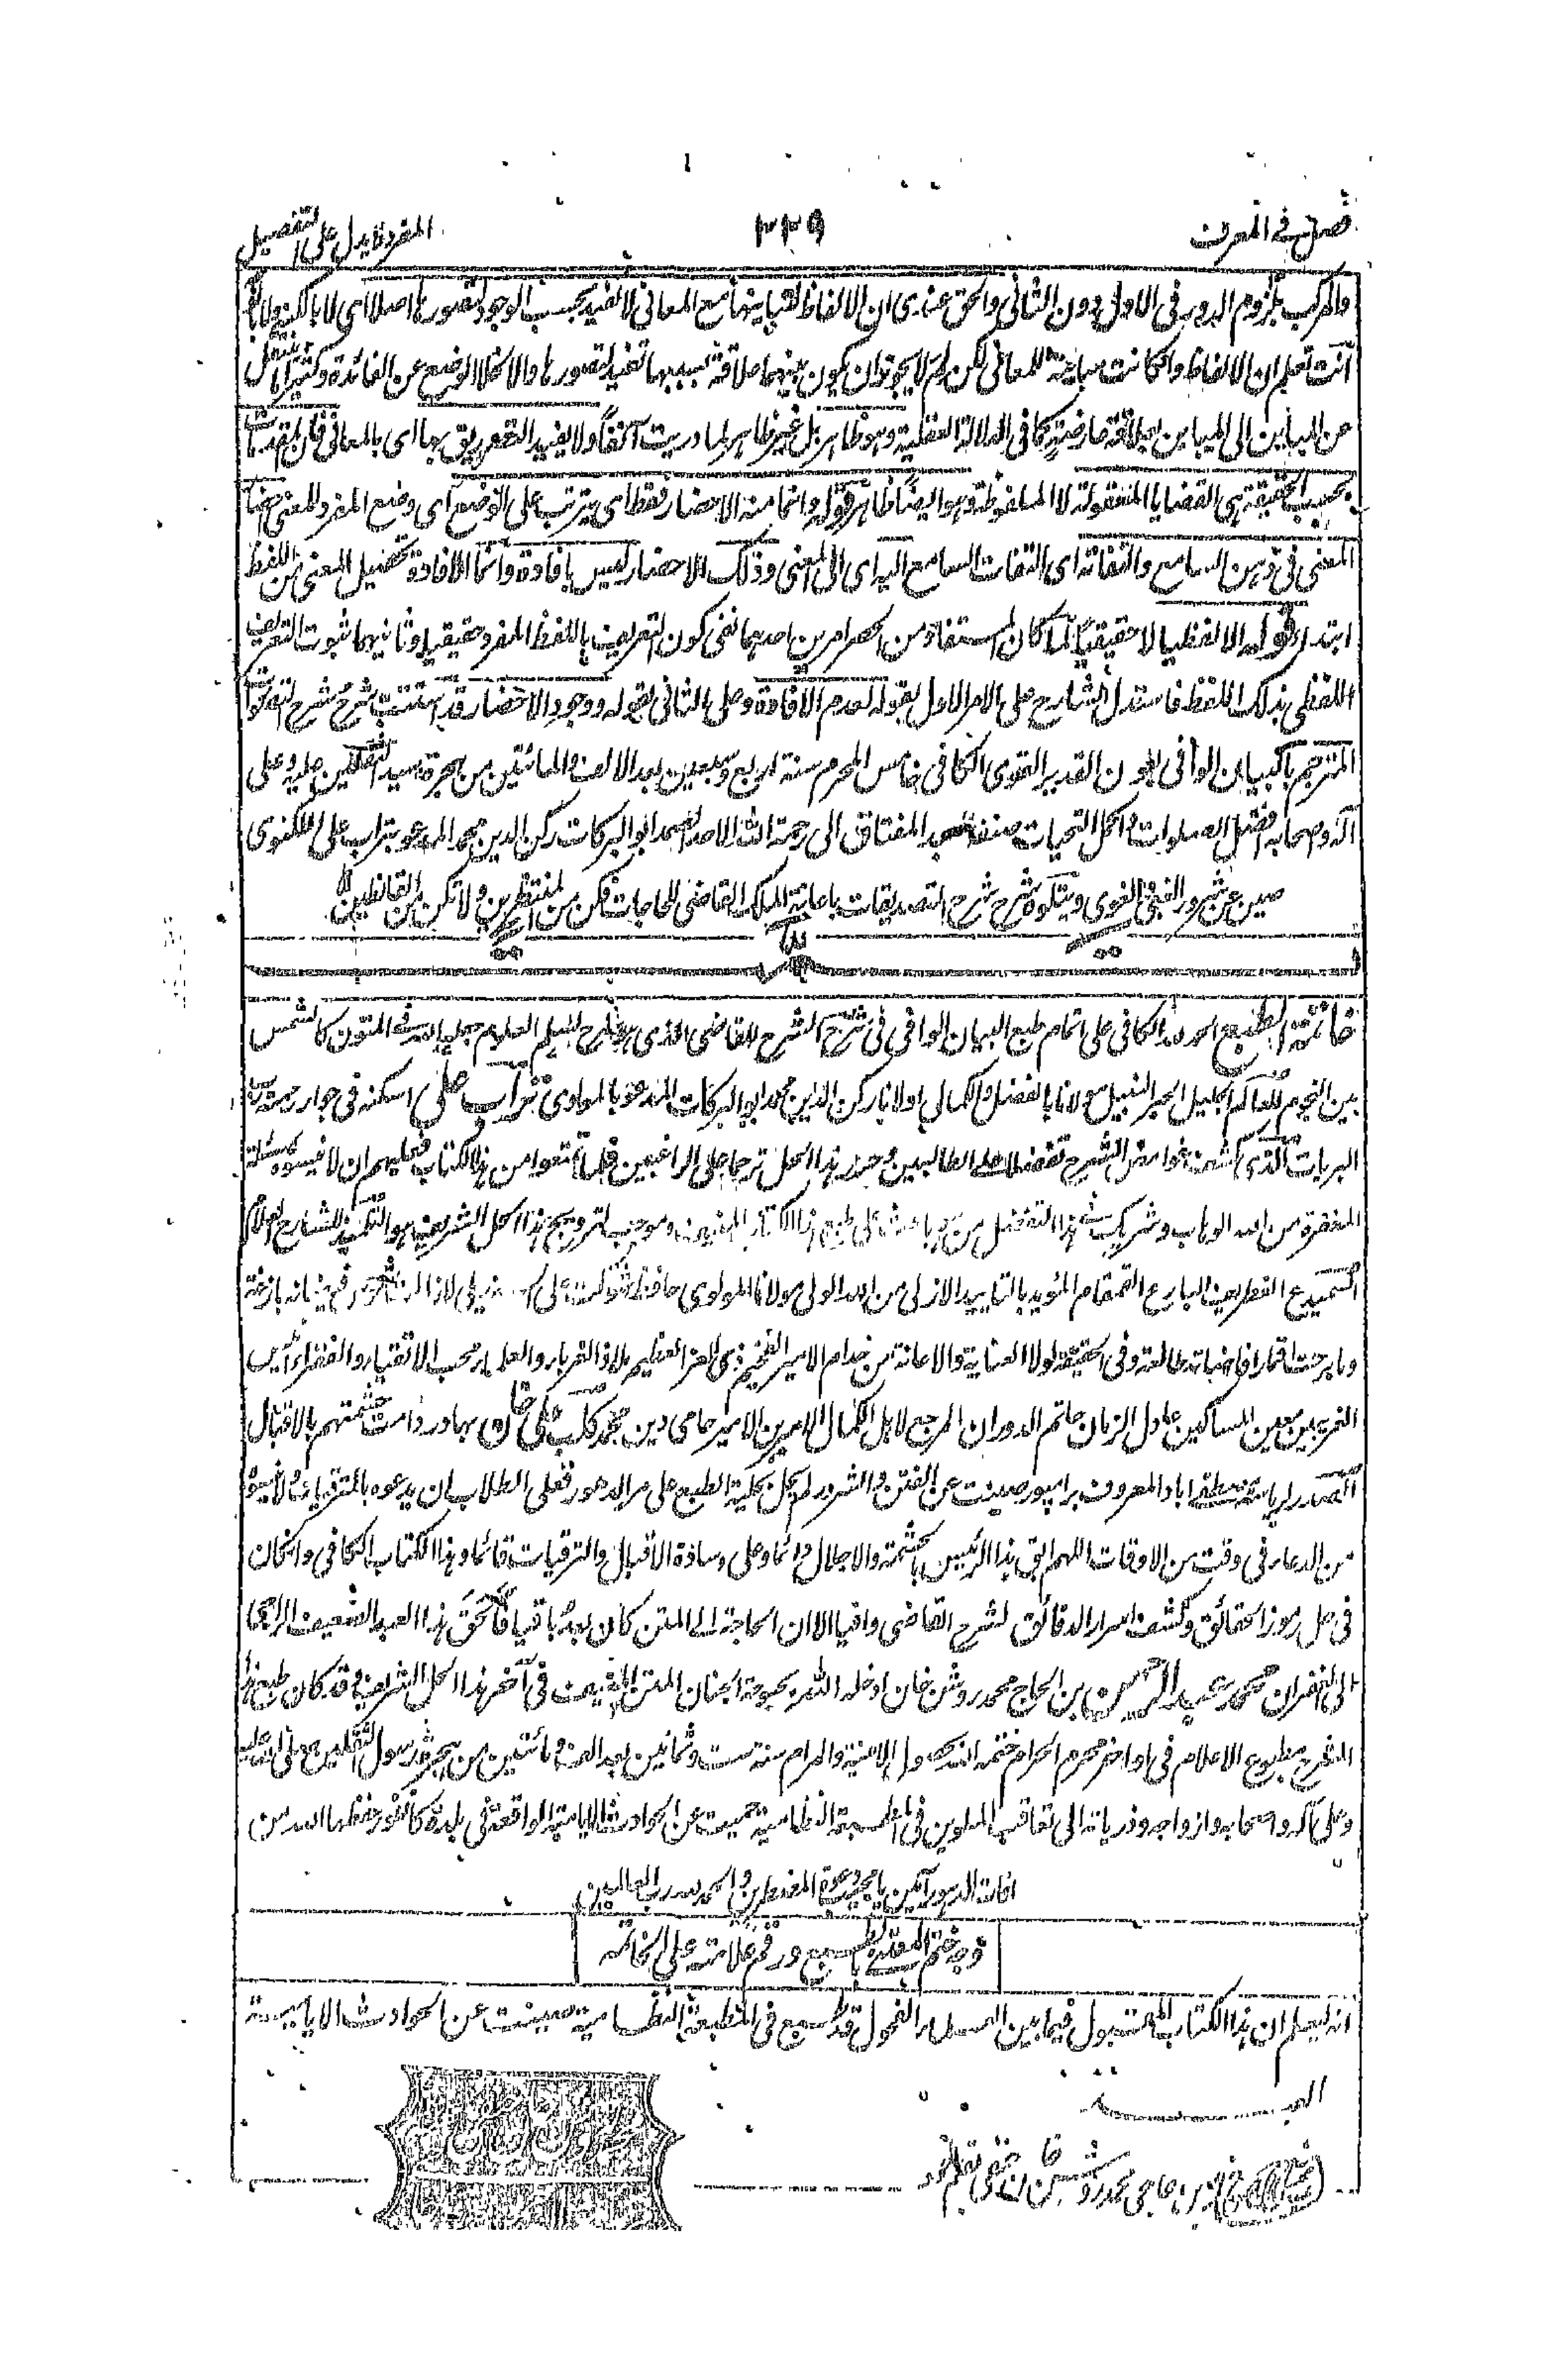 فصل فے المعرف
٢٢٩
المفرد لا يدل على التفصيل
والمركب بلزوم الدور فى الاول دون الثانى والحق عندى ان الالفاظ لتباينها مع المعانى لا تفيد بحسب الوجود لتصورها اصلا اى لا بالكنه ولا
انت تعلم ان الالفاظ وان كانت مباينة للمعانى لكن لم لا يجوز ان يكون بينهما علاقة بسببها تفيد لتصورها والا لخلا الوضع عن الفائدة وكثيرا ما
من المباين الى المباين بعلاقة عارضية كما فى الدلالة العقلية وهو ظاهر بل غير ظاهر لما دريت آنفا ولا يفيد التصديق بها اى بالمعانى فان المقدمات
بحسب الحقيقة هى القضايا المعقولة لا الملفوظة وهو ايضا ظاهر قوله وانما منه الاحضار فقط اى يترتب على الوضع اى وضع المفرد للمعنى
المعنى فى ذهن السامع والتفاته اى التفات السامع اليه اى الى المعنى وذلك الاحضار ليس بافادة وانما الافادة تحصيل المعنى من اللفظ
ابتداء قوله الا لفظيا لا حقيقيا لما كان المستفاد من الحصر امرين احدهما نفى كون التعريف باللفظ المفرد حقيقيا وثانيهما ثبوت التعريف
اللفظى بذلك اللفظ فاستدل الشارح على الامر الاول بقوله لعدم الافادة وعلى الثانى بقوله ووجود الاحضار قد استتب شرح شرح التصورات
المترجم بالبيان الوافى بعون القدير القوى الكافى خامس المحرم سنة اربع وسبعين بعد الالف والمائتين من هجرة سيد الثقلين عليه وعلى
آله وصحابه افضل الصلوات واكمل التحيات صنفه العبد المفتاق الى رحمة الله الاحد الصمد ابو البركات ركن الدين محمد المدعو بتراب على اللكنوى
صين عن شرور الغبى والغوى ويتلوه شرح شرح التصديقات باعانة الملك القاضى للحاجات فكن من المنتظرين ولا تكن من القانطين
خاتمة الطبع الحمد لله الكافى على اتمام طبع البيان الوافى فى شرح الشرح للقاضى الذى هو شرح لسلم العلوم جعله الله فے المتون كالشمس
بين النجوم للعالم الجليل الحبر النبيل مولانا بالفضل والكمال اولانا ركن الدين محمد ابو البركات المدعو بالمولوى تراب على اسكنه فى جوار رحمته
البريات الذى كشف غوامض الشرح تفضلا على الطالبين وحرر هذا الحل ترحما على الراغبين فلما تمتعوا من هذا الكتاب فعليهم ان لا ينسوه
المغفرة من الله الوهاب وشريك هذا التفضل من هو باعث على طبع هذا الكتاب المنيف وموجب لترويج هذا الحل الشريف هو التلميذ للشارح العلام
السميدع الغطريف البارع القمقام المؤيد بالتاييد الازلى من الله الولى مولانا المولوى حافظ شوكت على
وما برحت اقمار افاضاته طالعة وفى الحقيقة لولا العناية والاعانة من خدام الامير الفخيم ذى العز العظيم ملاذ الغرباء والعلماء محب الاتقياء والفقراء انيس
الغريبين معين المساكين عادل الزمان حاتم الدوران المرجع لاهل الكمال الامير بن الامير حامى دين محمد كلب على خان بهادر دامت حشمتهم بالاقبال
الصدر لرياسة مصطفے اباد المعروف برامپور صينت عن الفتن والشرور لم يحل بحلية الطبع على مر الدهور فعلى الطلاب ان يدعوه بالترقيات ولا ينسوه
من الدعاء فى وقت من الاوقات اللهم ابق هذا الرئيس بالحشمة والاجلال دائما وعلى وسادة الاقبال والترقيات قائما وهذا الكتاب الكافى وان كان
فى حل رموز الحقائق وكشف اسرار الدقائق لشرح القاضى وافيا الا ان الحاجة الے المتن كان بعد باقيا فالحق هذا العبد الضعيف الراجى
الى الغفران محمد عبد الرحمن بن الحاج محمد روشن خان ادخله الله بحبوحة الجنان المتن المنيف فى آخر هذا الحل الشريف وقد كان طبع هذا
الشرح مطبوع الاعلام فى اواخر محرم الحرام ختمه الله بحصول الامنية والمرام سنة ست وثمانين بعد الف ومائتين من هجرة رسول الثقلين صلى الله عليه
وعلى آله واصحابه وازواجه وذرياته الى تعاقب الملوين فى المطبعة النظامية حميت عن الحوادث الايامية الواقعة فى بلدة كانفور حفظها الله من
افات الدهور آمين يا مجيب دعوة المضطرين والحمد لله رب العالمين
وجه ختم المهتم بالطبع ورقم علامته على الخاتمة
انه ليعلم ان هذا الكتاب المقبول فيما بين العلماء الفحول قد طبع فى المطبعة النظامية صينت عن الحوادث الايامية
العبد
بن حاجى محمد روشن خان حنفى